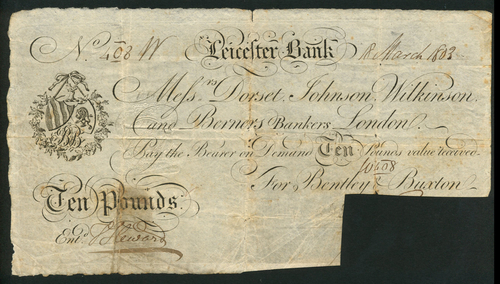 No. 408 W Leicester Bank 8 March 1803
Messrs. Dorset, Johnson, Wilkinson,
and Berners Bankers London.
Pay the Bearer on Demand Ten Pounds value received
For Bentley & Buxton
Ten Pounds.
Entd. Steward